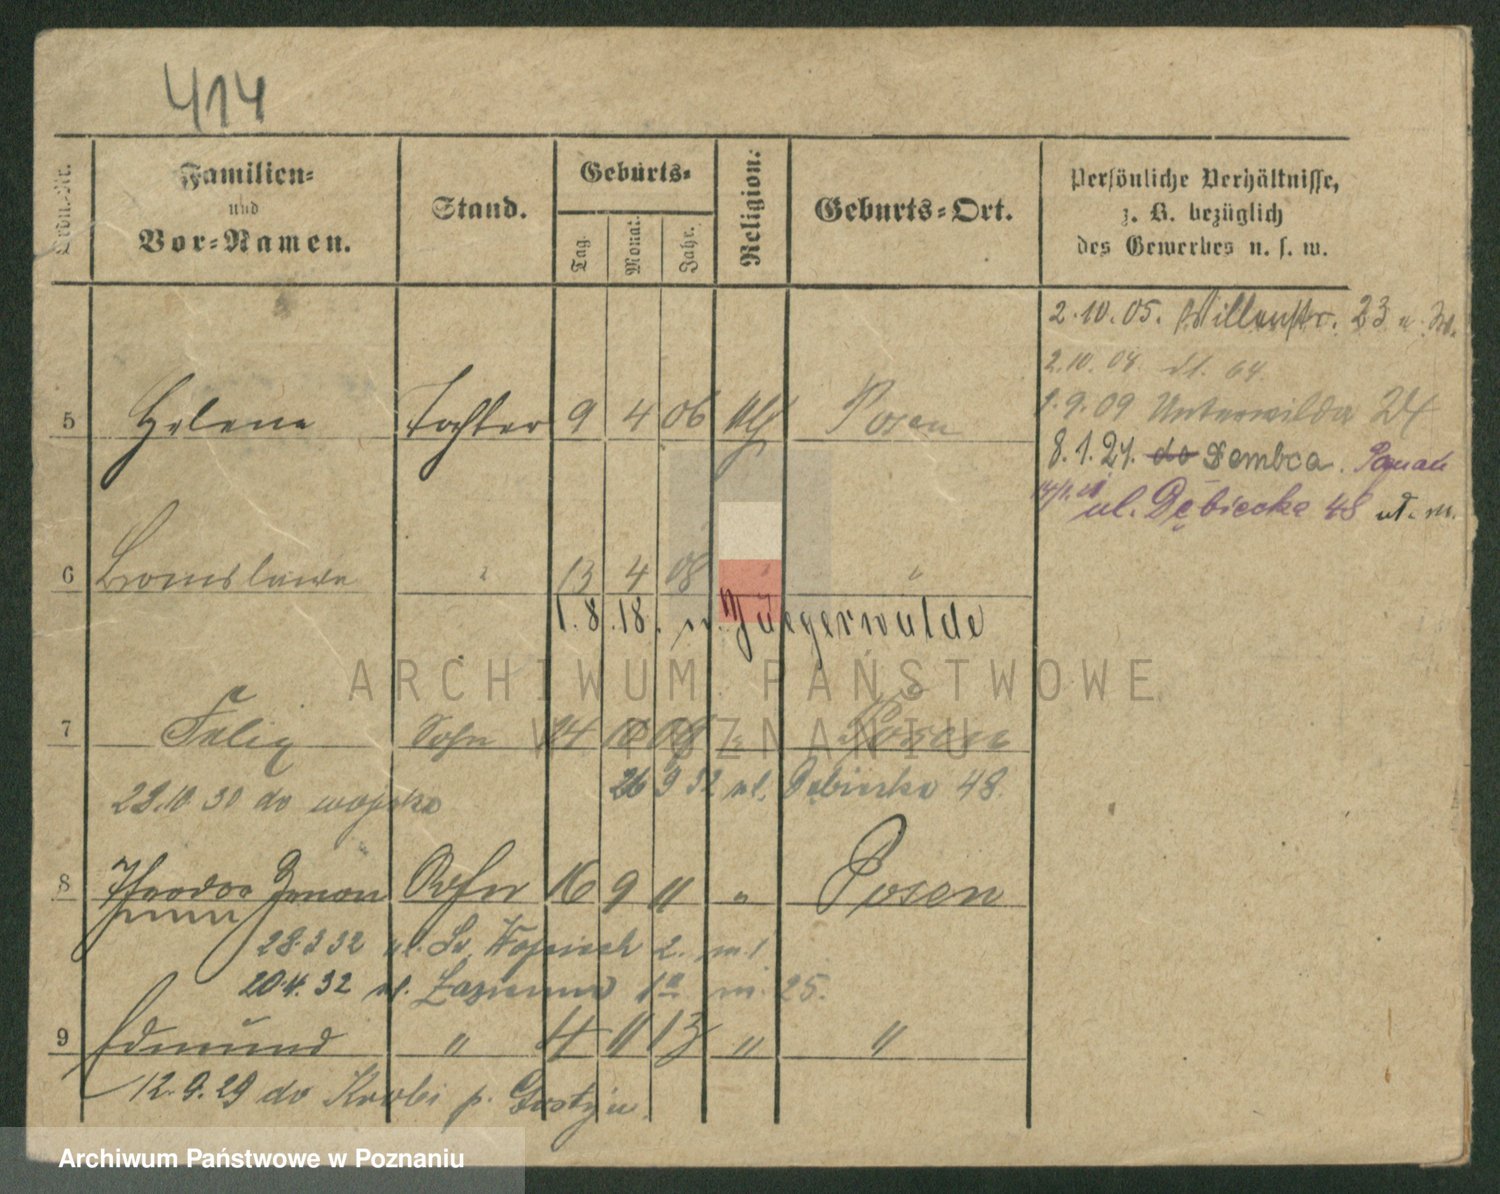 414
Familien=
und
Vor=Namen.
Stand.
Geburts=
Tag.
Monat.
Jahr.
Religion.
Geburts=Ort.
Persönliche Verhältnisse,
z. B. bezüglich
des Gewerbes u. s. w.
2.10.05. Willenstr. 23
2.10.07. 64.
1.9.09 Unterwilda 24
5 Helene Tochter 9 4 06 Posen
8.1.21. do Dembca.
ul. Dębiecka 48
6 Bronislawa " 13 4 08 " "
1.8.18. n. Jüegerwalde
ARCHIWUM PAŃSTWOWE
W POZNANIU
7 Felix Sohn 14 10 08 " Posen
23.10.30 do wojska
26 9 32 ul. Dębiecka 48.
8 Theodor Zenon Sohn 16 9 11 " Posen
28.3.32 ul. Św. Wojciech 2. m.1
20.4.32 ul. Łazienna 1a m. 25.
9 Edmund " 4 11 13 " "
12.9.29 do Krobi p. Gostyn.
Archiwum Państwowe w Poznaniu